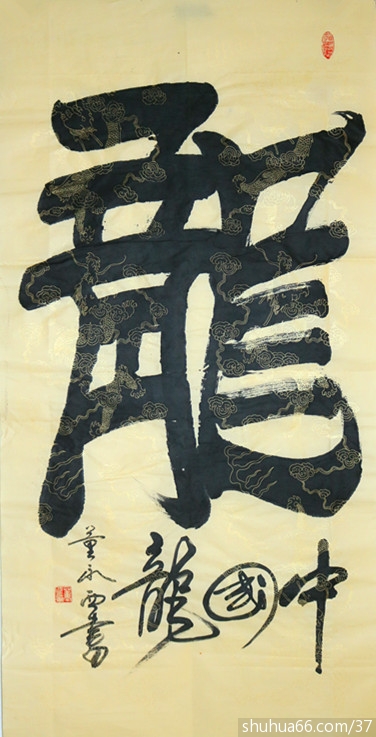 龍
中國龍
董永西書
shuhua66.com/37